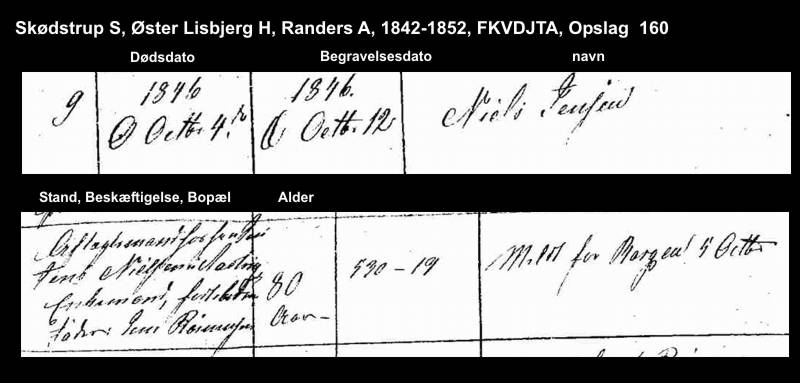 Skødstrup S, Øster Lisbjerg H, Randers A, 1842-1852, FKVDJTA, Opslag 160
Dødsdato Begravelsesdato navn
9 1846 1846. Niels Jensen
D Octbr 4. D Octbr 12
Stand, Beskæftigelse, Bopæl Alder
Aftægtsmand hos sønnen
Jens Nielsen i
Enkemand, 80 530 – 19 Meldt for 5 Octbr
Fader: Jens Rasmussen Aar –